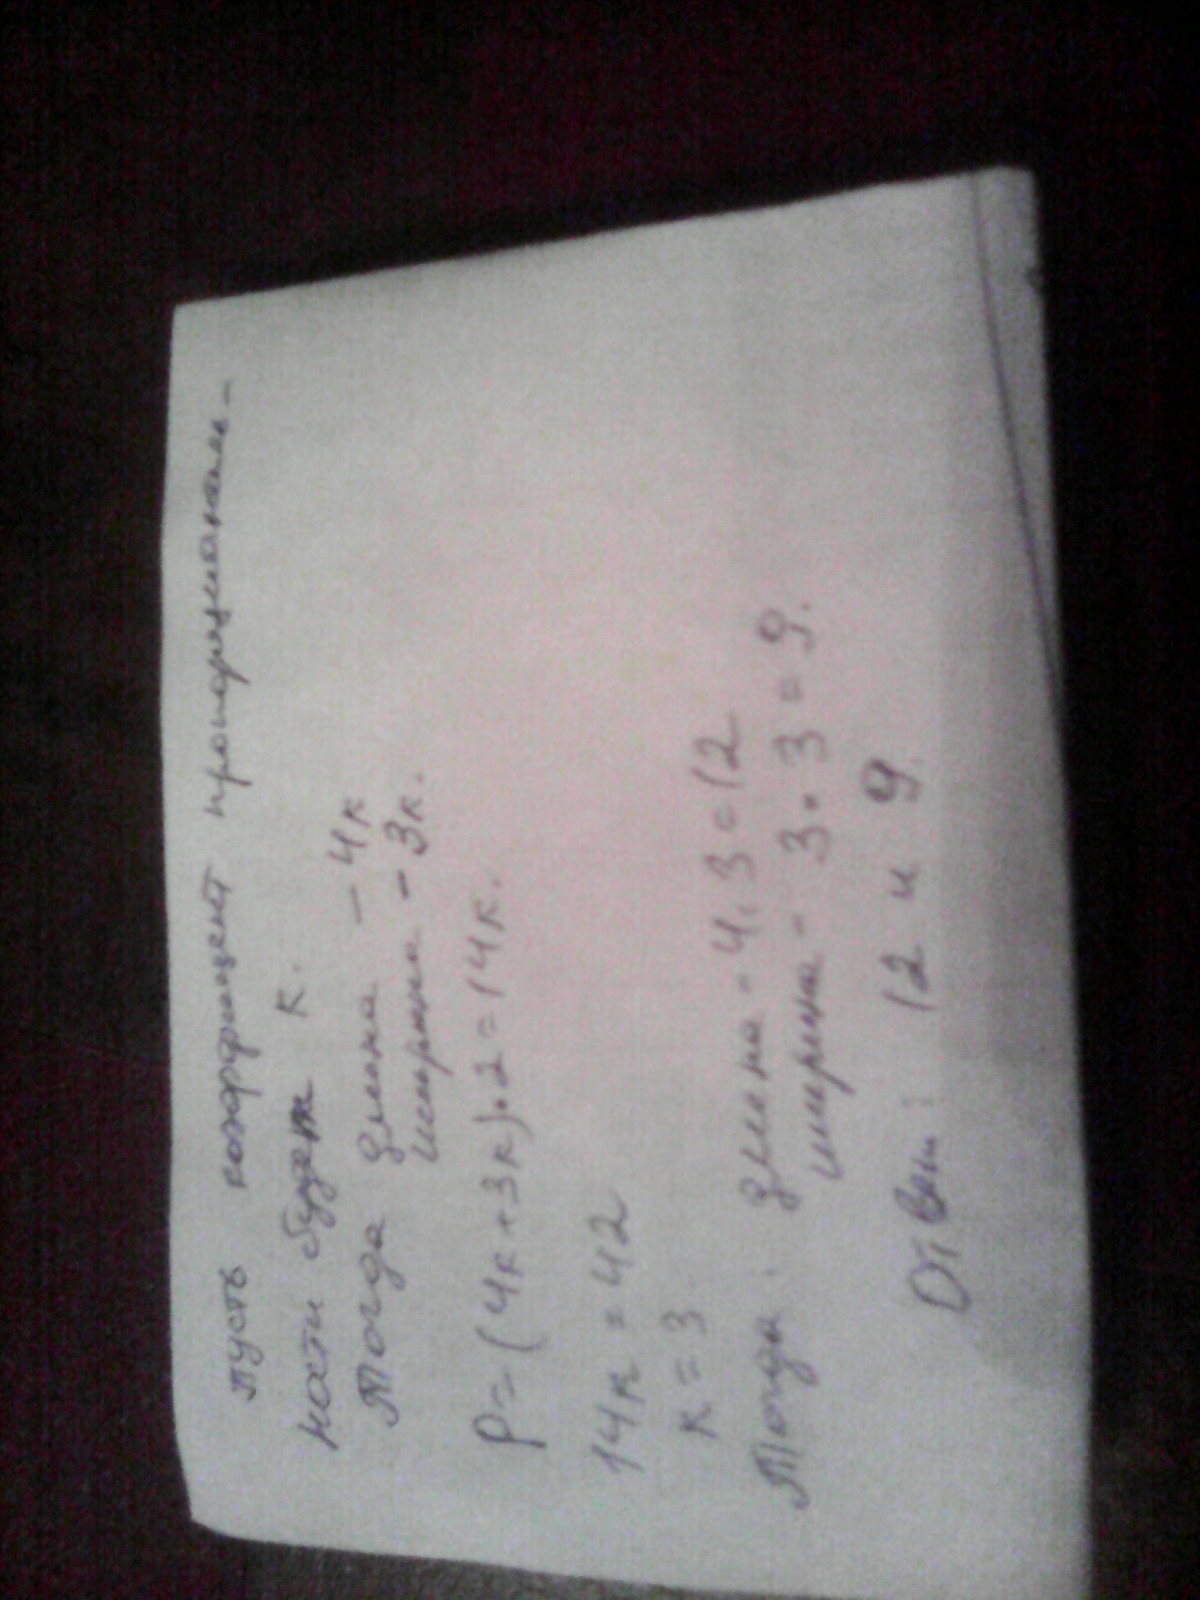 пусть коэффициент пропорциональ-
ности будет к.
Тогда длина - 4к
ширина - 3к.
P=(4к+3к)·2=14к.
14к=42
к=3
Тогда: длина - 4·3=12
ширина - 3·3=9.
Ответ: 12 и 9